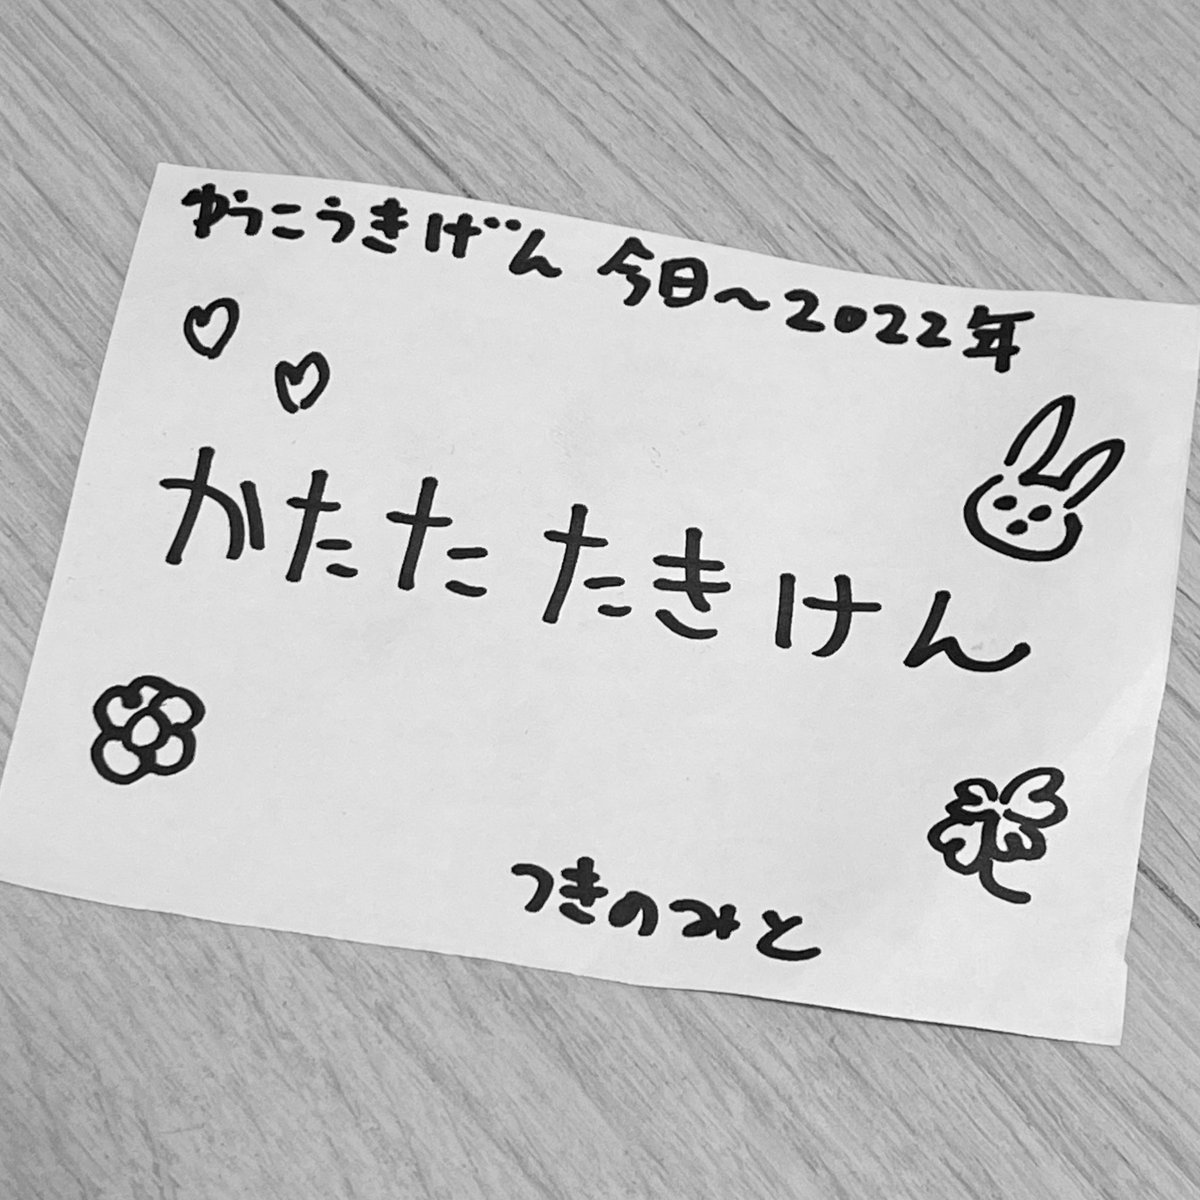 ゆうこうきげん 今日〜2022年
かたたたきけん
つきのみと